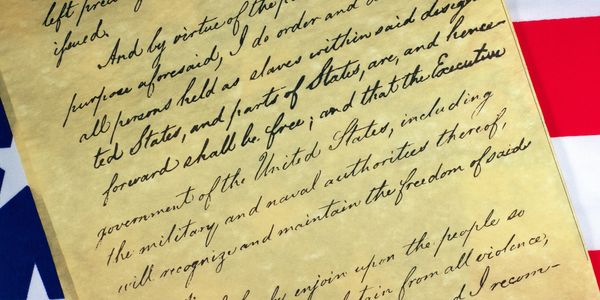 left prec
issued.
And by virtue of the po
purpose aforesaid, I do order and d
all persons held as slaves within said desig
ted States, and parts of States, are, and hence
forward shall be free; and that the Executive
government of the United States, including
the military and naval authorities thereof,
will recognize and maintain the freedom of said
enjoin upon the people so
from all violence;
I recom-